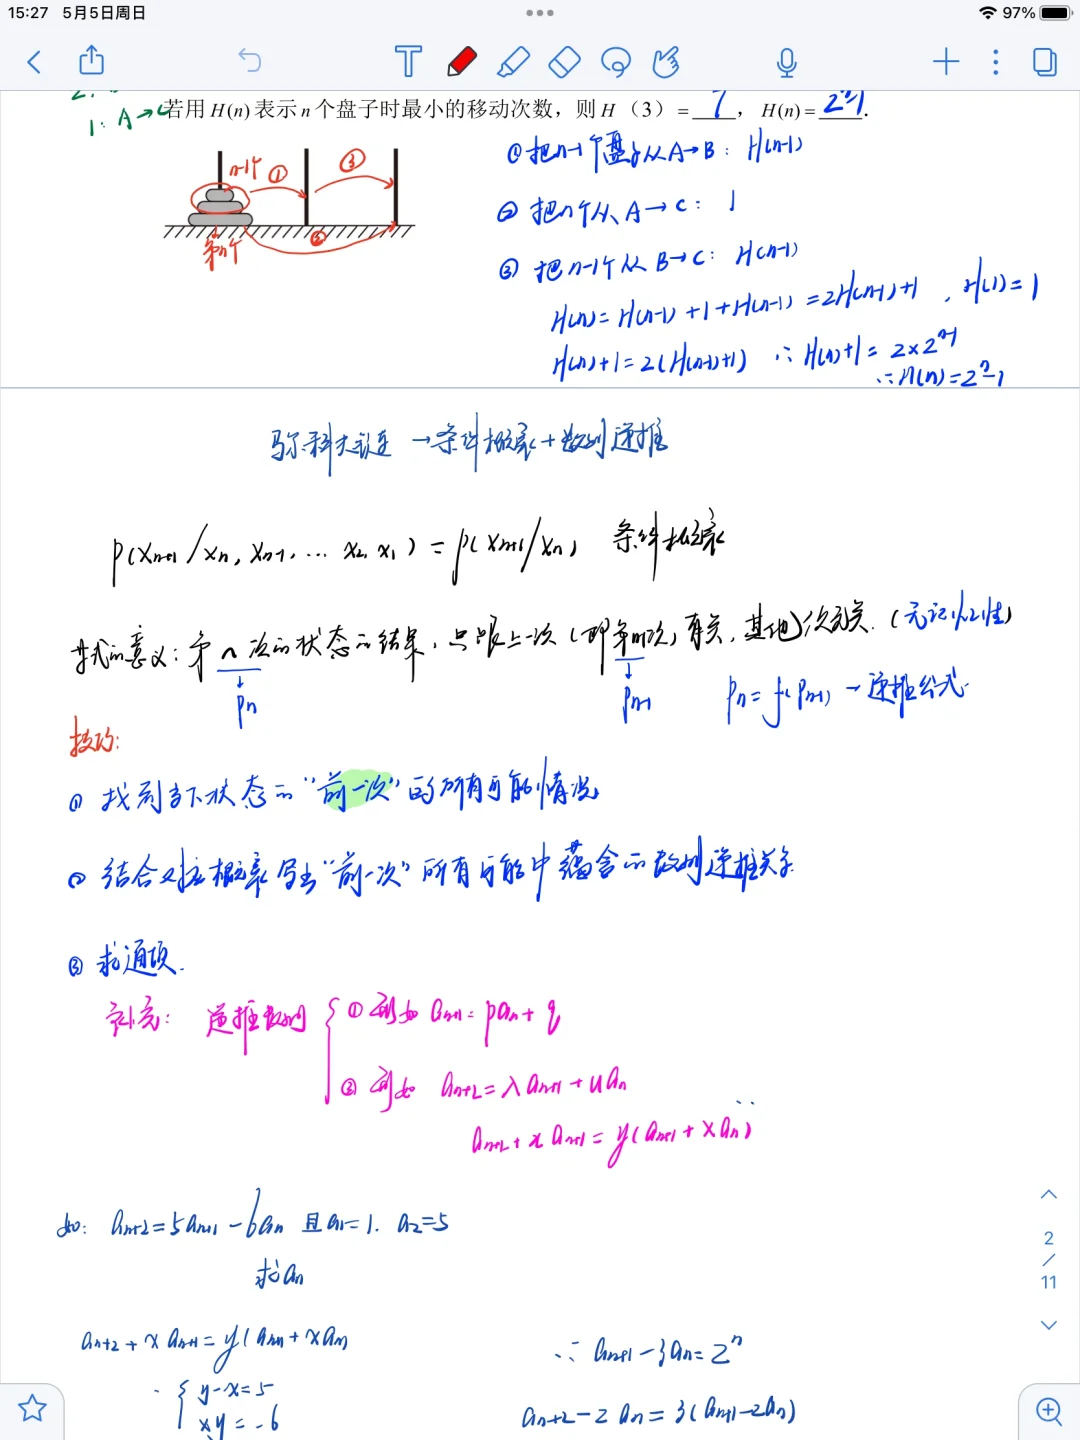 15:27 5月5日周日
97%
2:
1: A→C
若用 H(n) 表示 n 个盘子时最小的移动次数，则 H （3）= 7 ， H(n) = 2ⁿ-1 .
n-1个 ① ③
② 第n个
① 把n-1个盘子从A→B: H(n-1)
② 把n个从 A→C: 1
③ 把n-1个从 B→C: H(n-1)
H(n)= H(n-1) +1+H(n-1) =2H(n-1)+1 , H(1)=1
H(n)+1=2(H(n-1)+1) ∴ H(n)+1= 2×2ⁿ⁻¹
∴H(n)=2ⁿ-1
马尔科夫链 →条件概率+数列递推
P(Xn+1/Xn, Xn-1, ... X2, X1) = P(Xn+1/Xn) 条件概率
其式的意义: 第 n 次的状态的结果, 只跟上一次 (即第n-1次) 有关, 其他次无关. (无记忆性)
↓ Pn ↓ Pn-1 Pn= f(Pn-1) →递推公式.
技巧:
① 找到当下状态的“前一次”的所有可能情况
② 结合对应概率写出“前一次”所有可能中蕴含的数列递推关系.
③ 求通项.
补充: 递推数列 { ① 形如 an+1= pan+ q
② 形如 an+2=λan+1+uan
an+2+xan+1= y(an+1+xan)
如: an+2=5an+1-6an 且a1=1. a2=5
求an
an+2+xan+1= y(an+1+xan)
{ y-x=5
xy=-6
∴ an+1-3an=2ⁿ
an+2-2an=3(an+1-2an)
2
/
11